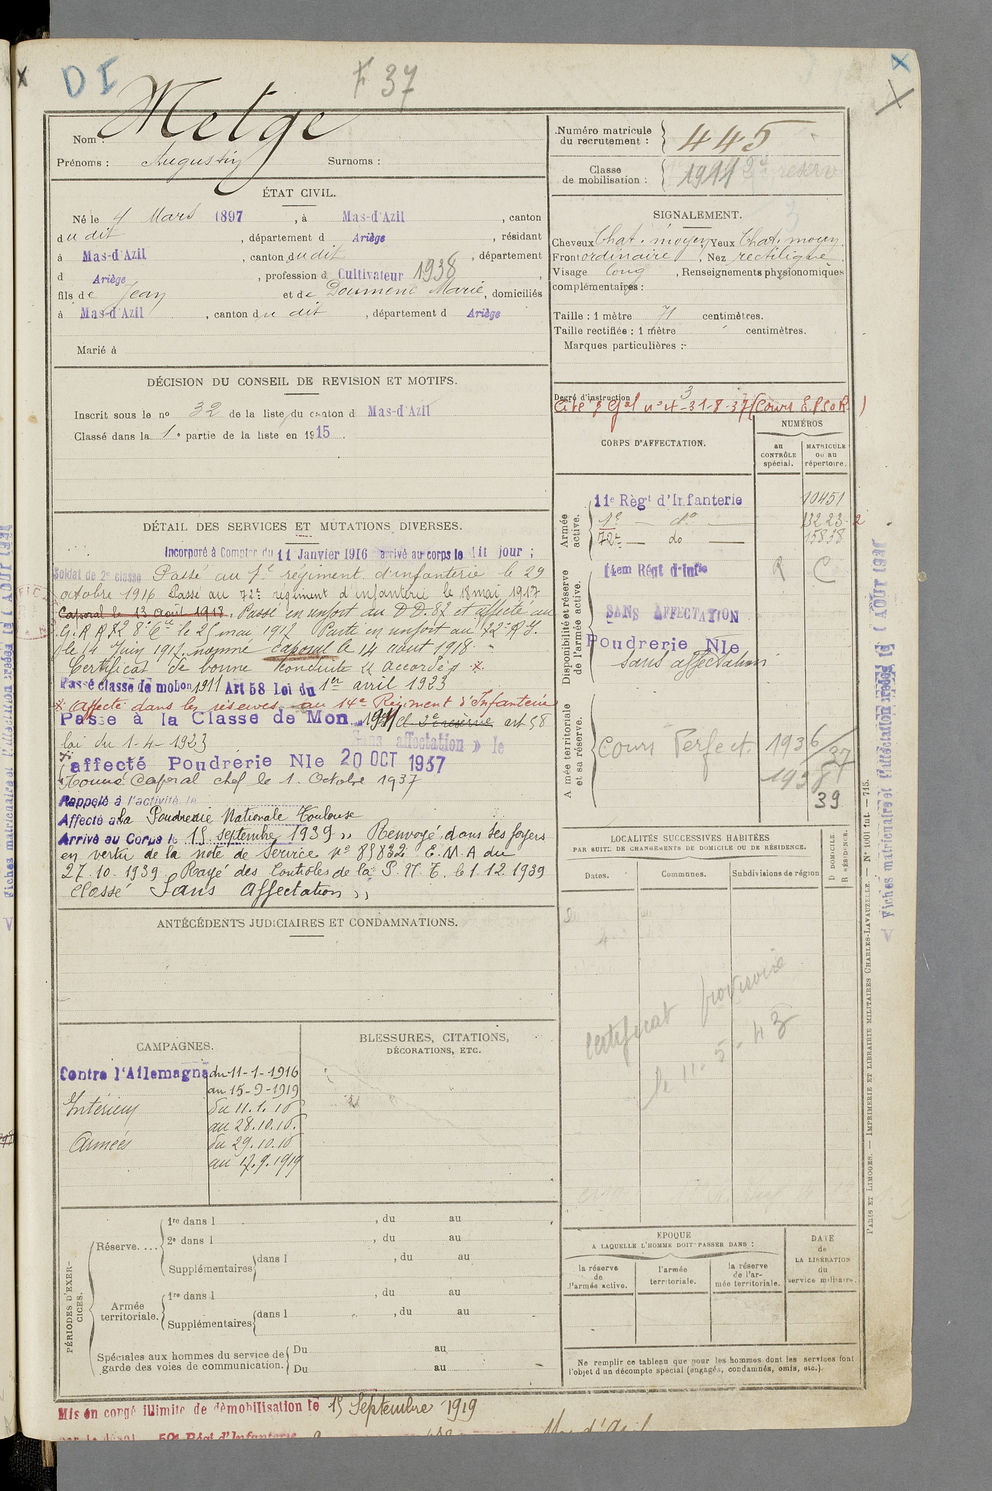 D I
F 37
Nom : Metge
Prénoms : Augustin Surnoms :
ÉTAT CIVIL.
Né le 4 Mars 1897, à Mas-d'Azil, canton
du dit, département d Ariège, résidant
à Mas-d'Azil, canton du dit, département
d Ariège, profession d Cultivateur 1938
fils de Jean et de Doumenc Marie, domiciliés
à Mas-d'Azil, canton du dit, département d Ariège
Marié à
DÉCISION DU CONSEIL DE REVISION ET MOTIFS.
Inscrit sous le no 32 de la liste du canton d Mas-d'Azil
Classé dans la 1e partie de la liste en 1915
DÉTAIL DES SERVICES ET MUTATIONS DIVERSES.
Incorporé à Compter du 11 Janvier 1916 arrivé au corps le dit jour ;
Soldat de 2e classe Passé au 1e régiment d'infanterie le 29
octobre 1916 Passé au 72e régiment d'infanterie le 18 mai 1917
Caporal le 13 août 1918. Passé en renfort au D.D. 82 et affecté au
Juin 1917, nommé caporal le 14 août 1918.
Certificat de bonne conduite "accordé"
Passé classe de mobon 1911 Art 58 Loi du 1er avril 1923
affecté dans les réserves au 14e Régiment d'Infanterie
Passe à la Classe de Mon 1911 cl. 2e réserve art 58
loi du 1-4-1923 Sans affectation » le
affecté Poudrerie Nle 20 OCT 1937
Nommé Caporal chef le 1. Octobre 1937
Rappelé à l'activité le
Affecté à la Poudrerie Nationale Toulouse
Arrivé au Corps le 15 septembre 1939 ,, Renvoyé dans ses foyers
en vertu de la note de service no 85832 E.M.A du
27.10.1939. Rayé des Contrôles de la P.N.T. le 1.12.1939
Classé Sans Affectation ,,
ANTÉCÉDENTS JUDICIAIRES ET CONDAMNATIONS.
CAMPAGNES.
Contre l'Allemagne du 11-1-1916
au 15-9-1919
Intérieur du 11.1.16
au 28.10.16.
Armées du 29.10.16
au 17.9.1919
BLESSURES, CITATIONS,
DÉCORATIONS, ETC.
PÉRIODES D'EXERCICES.
Réserve....
1re dans l , du au
2e dans l , du au
Supplémentaires dans l , du au
Armée territoriale.
1re dans l , du au
Supplémentaires dans l , du au
Spéciales aux hommes du service de garde des voies de communication.
Du au
Du au
Mis en congé illimité de démobilisation le 15 Septembre 1919
Numéro matricule du recrutement : 445
Classe de mobilisation : 1911 2e reserve
SIGNALEMENT.
Cheveux Chat. moyen Yeux Chat. moyen.
Front ordinaire, Nez rectiligne.
Visage long, Renseignements physionomiques
complémentaires :
Taille : 1 mètre 71 centimètres.
Taille rectifiée : 1 mètre centimètres.
Marques particulières :
Degré d'instruction 3
Cité Gal no 4-31-8-37 (Cours E.P.S.O.R.)
CORPS D'AFFECTATION.
NUMÉROS
AU CONTRÔLE spécial.
MATRICULE ou au répertoire.
Armée active.
11e Régt d'Infanterie 10451
1e do 13223
72e do 15838
Disponibilité et réserve de l'armée active.
14em Régt d'Infie R C
SANS AFFECTATION
Poudrerie Nle
sans affectation
Armée territoriale et sa réserve.
Cours Perfect. 1936/37
1938
39
LOCALITÉS SUCCESSIVES HABITÉES
PAR SUITE DE CHANGEMENTS DE DOMICILE OU DE RÉSIDENCE.
Dates.
Communes.
Subdivisions de région
D DOMICILE
R RÉSIDENCE.
Certificat provisoire
le 11-5-43
EPOQUE
A LAQUELLE L'HOMME DOIT PASSER DANS :
la réserve de l'armée active.
l'armée territoriale.
la réserve de l'armée territoriale.
DATE
de
LA LIBÉRATION
du
service militaire.
Ne remplir ce tableau que pour les hommes dont les services font
l'objet d'un décompte spécial (engagés, condamnés, omis, etc.).
PARIS ET LIMOGES. — IMPRIMERIE ET LIBRAIRIE MILITAIRES CHARLES-LAVAUZELLE. — No 1001 int — 715.